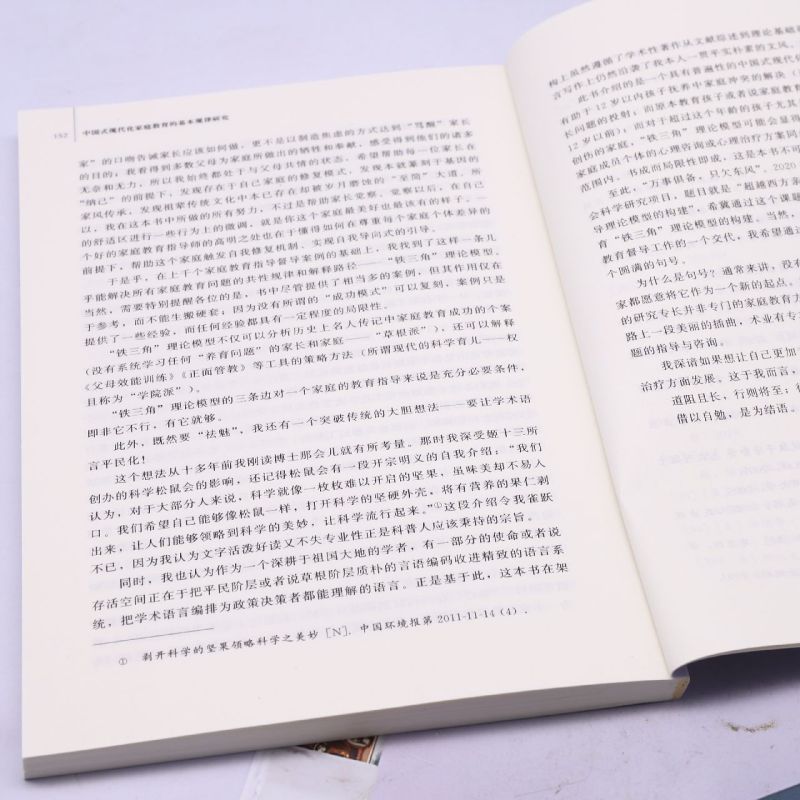 152 中国式现代化家庭教育的基本规律研究
家”的口吻告诫家长应该如何做，更不是以制造焦虑的方式达到“骂醒”家长
的目的；我看得到多数父母为家庭所做出的牺牲和奉献，感受得到他们的诸多
无奈和无力，所以我始终都处于与父母共情的状态，希望帮助每一位家长在
“纳己”的前提下，发现存在于自己家庭的修复模式，发现本就篆刻于基因的
家风传承，发现祖辈传统文化中本已存在却被岁月磨蚀的“至简”大道。所
以，我在这本书中所做的所有努力，不过是帮助家长觉察，觉察以后，在自己
的舒适区进行一些行为上的微调，就是你这个家庭最美好也最该有的样子。一
个好的家庭教育指导师的高明之处也在于懂得如何在尊重每个家庭个体差异的
前提下，帮助这个家庭触发自我修复机制、实现自我导向式的引导。
于是乎，在上千个家庭教育指导督导案例的基础上，我找到了这样一条几
乎能解决所有家庭教育问题的共性规律和解释路径——“铁三角”理论模型。
当然，需要特别提醒各位的是，书中尽管提供了相当多的案例，但其作用仅在
于参考，而不能生搬硬套，因为没有所谓的“成功模式”可以复刻，案例只是
提供了一些经验，而任何经验都具有一定程度的局限性。
“铁三角”理论模型不仅可以分析历史上名人传记中家庭教育成功的个案
（没有系统学习任何“养育问题”的家长和家庭——“草根派”），还可以解释
《父母效能训练》《正面管教》等工具的策略方法（所谓现代的科学育儿——权
且称为“学院派”）。
“铁三角”理论模型的三条边对一个家庭的教育指导来说是充分必要条件，
即非它不行，有它就够。
此外，既然要“祛魅”，我还有一个突破传统的大胆想法——要让学术语
言平民化！
这个想法从十多年前我刚读博士那会儿就有所考量。那时我深受姬十三所
创办的科学松鼠会的影响，还记得松鼠会有一段开宗明义的自我介绍：“我们
认为，对于大部分人来说，科学就像一枚枚难以开启的坚果，虽味美却不易入
口。我们希望自己能够像松鼠一样，打开科学的坚硬外壳，将有营养的果仁剥
出来，让人们能够领略到科学的美妙，让科学流行起来。”①这段介绍令我雀跃
不已，因为我认为文字活泼好读又不失专业性正是科普人应该秉持的宗旨。
同时，我也认为作为一个深耕于祖国大地的学者，有一部分的使命或者说
存活空间正在于把平民阶层或者说草根阶层质朴的言语编码收进精致的语言系
统，把学术语言编排为政策决策者都能理解的语言。正是基于此，这本书在架
① 剥开科学的坚果领略科学之美妙 [N]. 中国环境报第 2011-11-14 (4) .
构上虽然遵循了学术性著作从文献综述到理论基础
言写作上仍然沿袭了我本人一贯平实朴素的文风。
此书介绍的是一个具有普遍性的中国式现代化
有助于12岁以内孩子抚养中家庭冲突的解决（
长问题的投射；而原本教育孩子或者说家庭教育
12岁以前）；而对于超过这个年龄的孩子尤其
创伤的家庭，“铁三角”理论模型可能会显得
家庭成员个体的心理咨询或心理治疗方案同
范围内。书成而局限性即成，这是本书不可
至此，“万事俱备，只欠东风”。2020
会科学研究项目，题目就是“超越西方亲
导理论模型的构建”，希冀通过这个课题
育“铁三角”理论模型的构建。当然，
教育督导工作的一个交代，我希望通过
个圆满的句号。
为什么是句号？通常来讲，没有
家都愿意将它作为一个新的起点。
的研究专长并非专门的家庭教育方
路上一段美丽的插曲，术业有专
题的指导与咨询。
我深谙如果想让自己更加
治疗方面发展。这于我而言，
道阻且长，行则将至；行
借以自勉，是为结语。